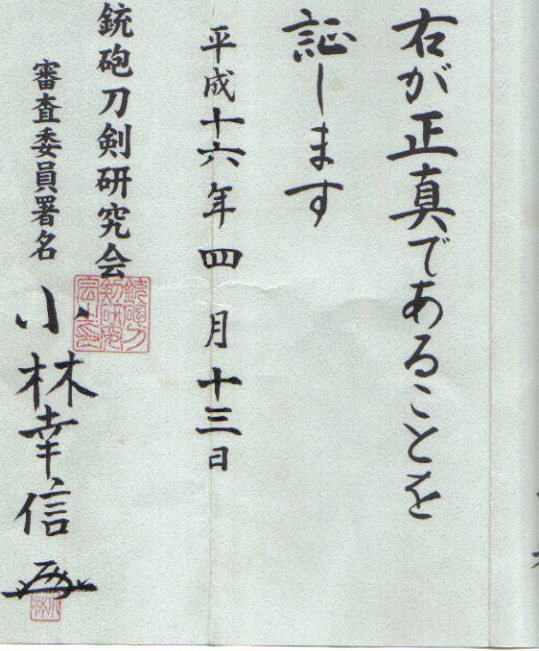 右が正真であることを
証します
平成十六年四月十三日
銃砲刀剣研究会
審査委員署名 小林幸信